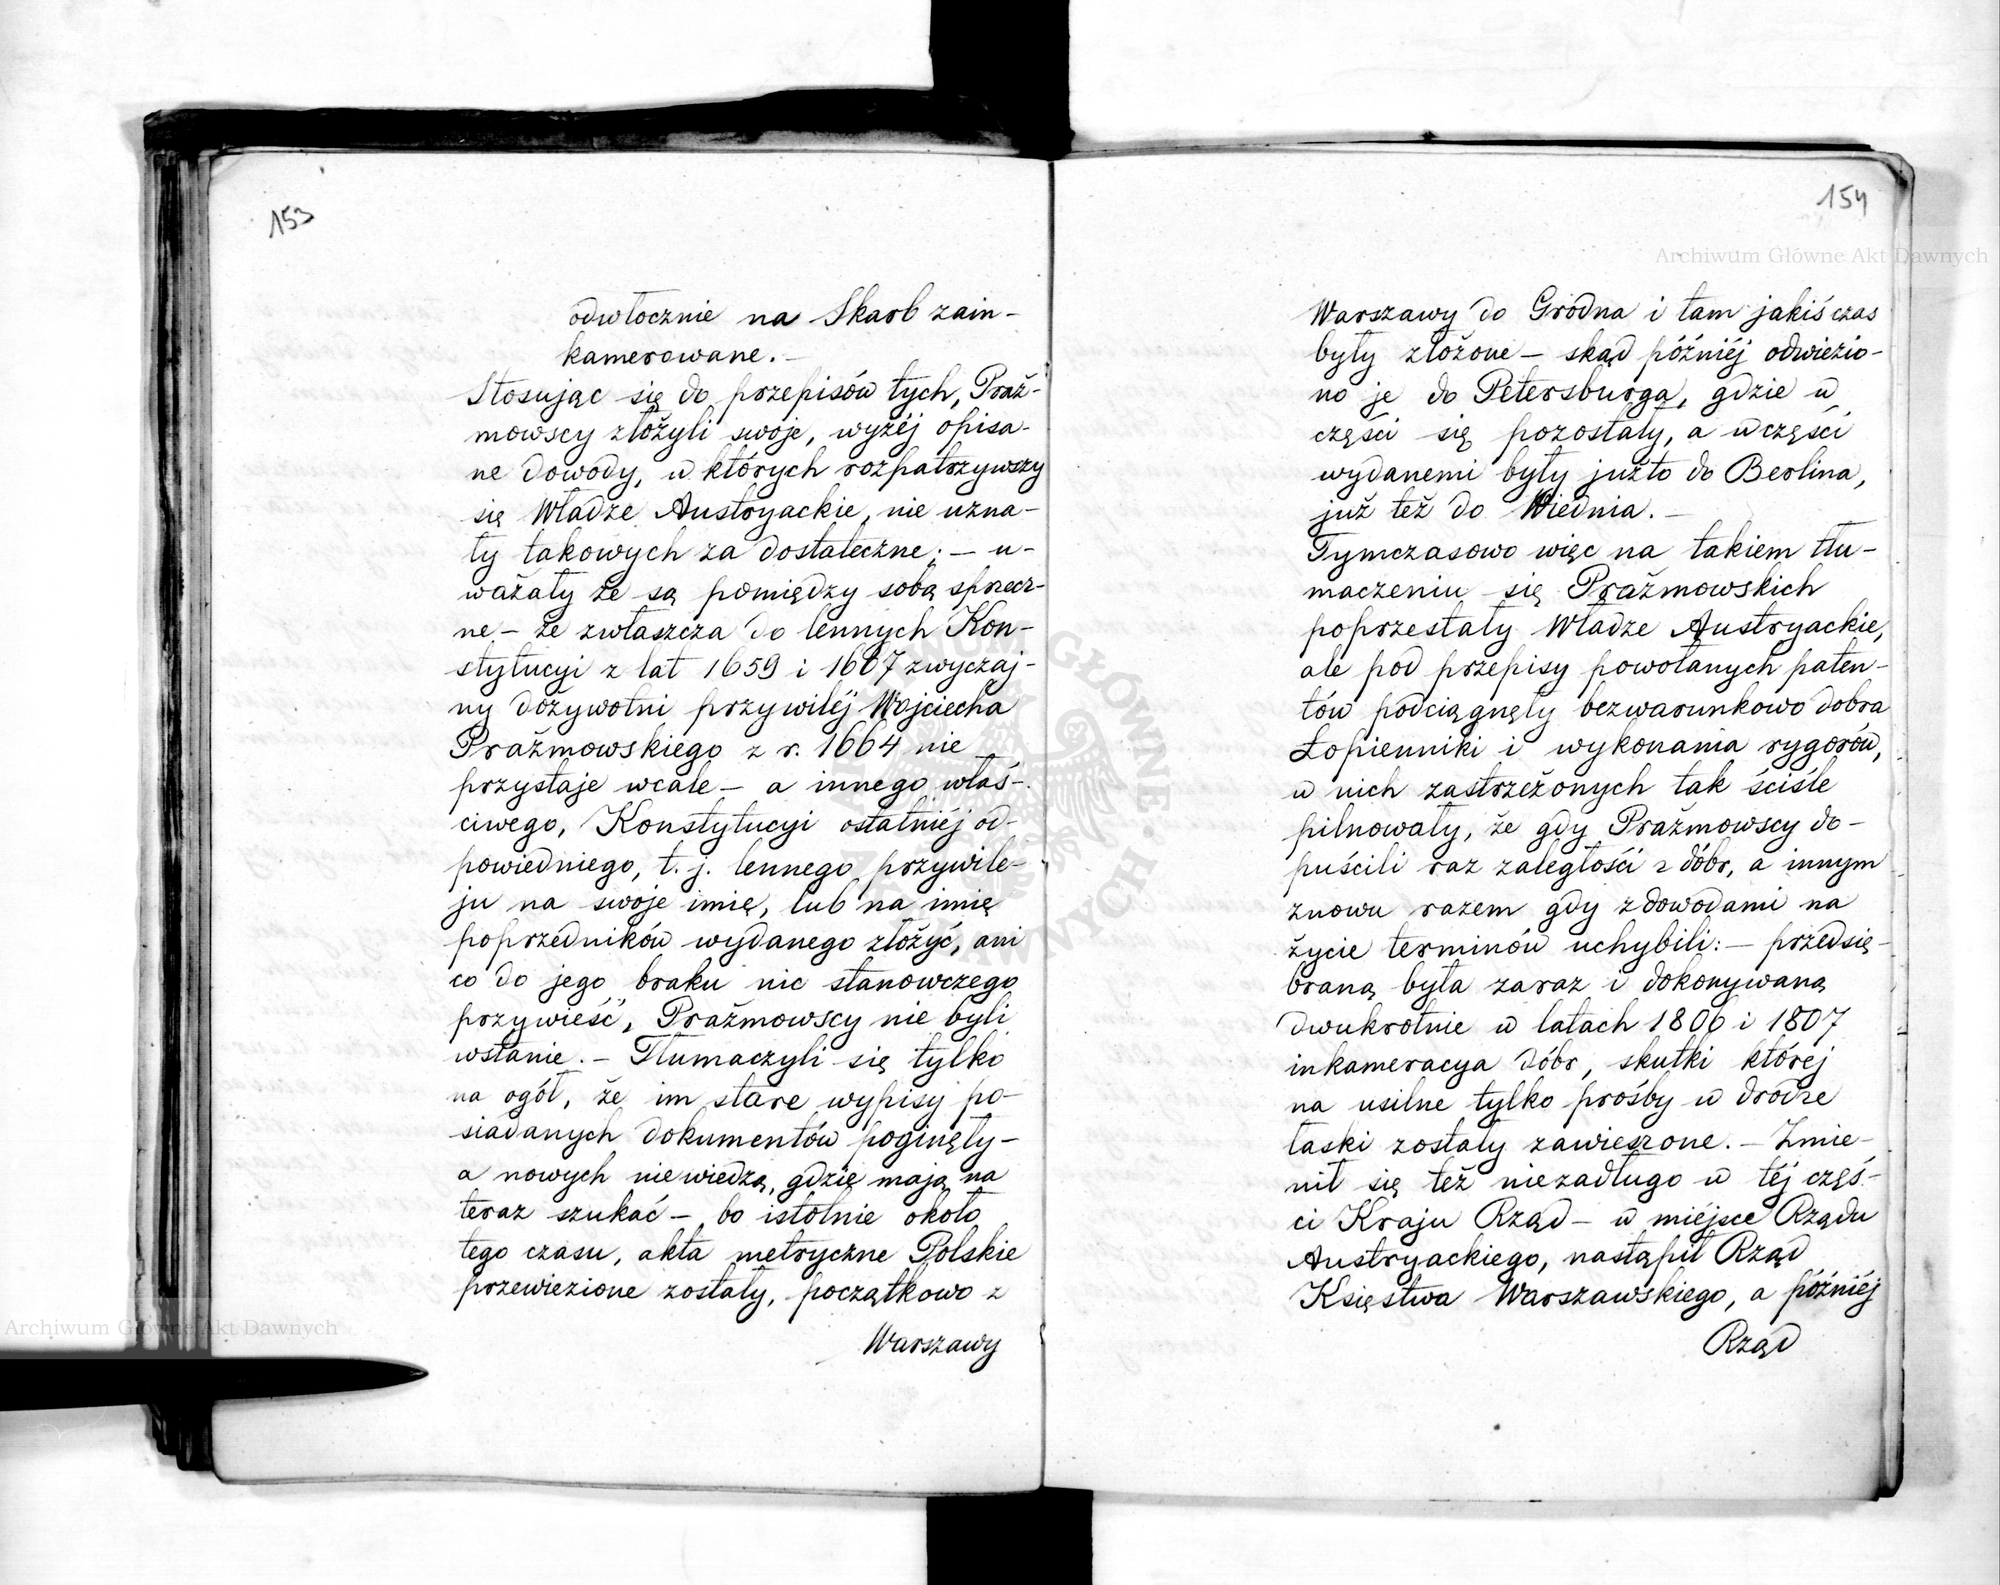 153
odwłocznie na Skarb zain-
kamerowane. –
Stosując się do przepisów tych, Praż-
mowscy złożyli swoje, wyżéj opisa-
ne dowody, w których rozpatrzywszy
się Władze Austryackie, nie uzna-
ły takowych za dostateczne; – u-
ważały że są pomiędzy sobą sprzecz-
ne – że zwłaszcza do lennych Kon-
stytucyi z lat 1659 i 1667 zwyczaj-
ny dożywotni przywiléj Wojciecha
Prażmowskiego z r. 1664 nie
przystaje wcale – a innego właś-
ciwego, Konstytucyi ostatniéj od-
powiedniego, t. j. lennego przywile-
ju na swoje imię, lub na imię
poprzedników wydanego złożyć, ani
co do jego braku nic stanowczego
przywieść, Prażmowscy nie byli
wstanie. – Tłumaczyli się tylko
na ogół, że im stare wypisy po-
siadanych dokumentów poginęły –
a nowych niewiedzą, gdzie mają na
teraz szukać – bo istotnie około
tego czasu, akta metryczne Polskie
przewiezione zostały, początkowo z
Warszawy
154
Warszawy do Grodna i tam jakiś czas
były złożone – skąd późniéj odwiezio-
no je do Petersburga, gdzie w
części się pozostały, a w części
wydanemi były jużto do Berlina,
już też do Wiednia. –
Tymczasowo więc na takiem tłu-
maczeniu się Prażmowskich
poprzestały Władze Austryackie,
ale pod przepisy powołanych paten-
tów podciągnęły bezwarunkowo dobra
Łopienniki i wykonania rygorów,
w nich zastrzeżonych tak ściśle
pilnowały, że gdy Prażmowscy do-
puścili raz zaległości z dóbr, a innym
znowu razem gdy z dowodami na
życie terminów uchybili: – przedsię-
braną była zaraz i dokonywaną
dwukrotnie w latach 1806 i 1807
inkameracya dóbr, skutki której
na usilne tylko prośby w drodze
łaski zostały zawieszone. – Zmie-
nił się też niezadługo w téj częś-
ci Kraju Rząd – w miéjsce Rządu
Austryackiego, nastąpił Rząd
Księstwa Warszawskiego, a późniéj
Rząd
Archiwum Główne Akt Dawnych
Archiwum Główne Akt Dawnych